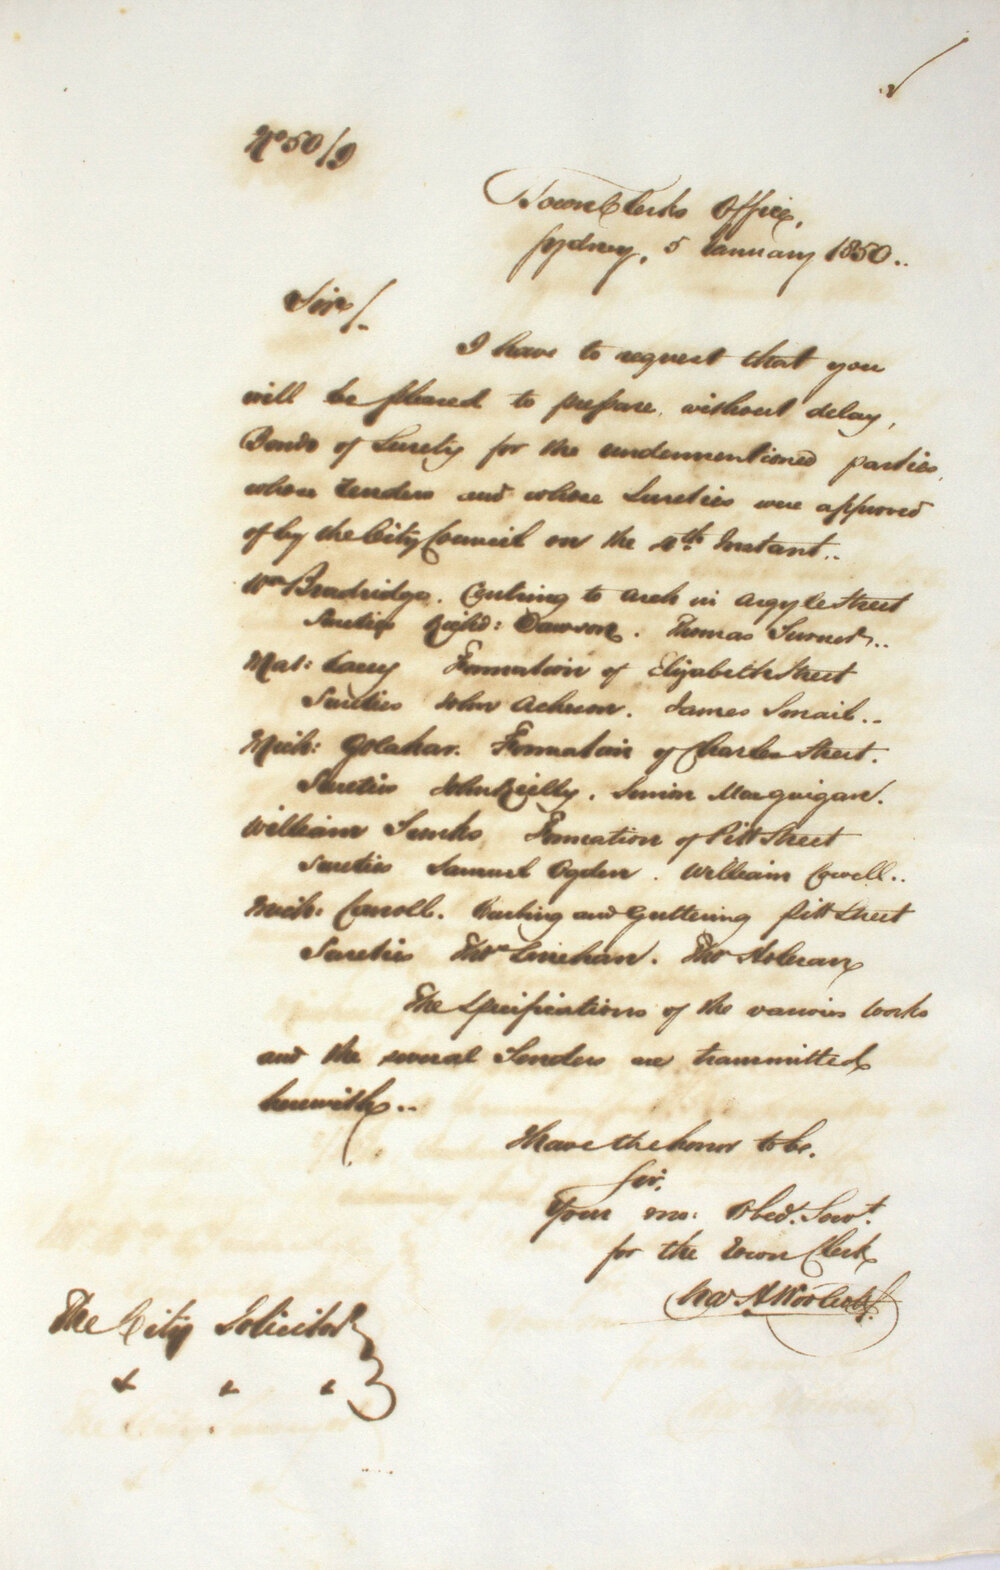 No 50/9
Town Clerks Office,
Sydney, 5 January 1850..
Sir/.
I have to request that you
will be pleased to prepare, without delay,
Bonds of Surety for the undermentioned parties,
whose Tenders and whose Sureties were approved
of by the City Council on the 4th Instant..
Wm Bradridge. Centring to Arch in Argyle Street
Sureties Richd: Dawson. Thomas Turner..
Mat: Lacey Formation of Elizabeth Street
Sureties John Acheson. James Smail..
Mich: Golahar. Formation of Charles Street.
Sureties John Reilly. Simon Macguigan.
William Tunks, Formation of Pitt Street
Sureties Samuel Ogden. William Cowell..
Mich: Carroll. Kerbing and Guttering Pitt Street
Sureties Thos Linehan. Thos
The Specifications of the various Works
and the several Tenders are transmitted
herewith..
I have the honor to be.
Sir.
Your mo: Obed. Servt.
for the Town Clerk
Chas H Woolcott
The City Solicitor
& & &